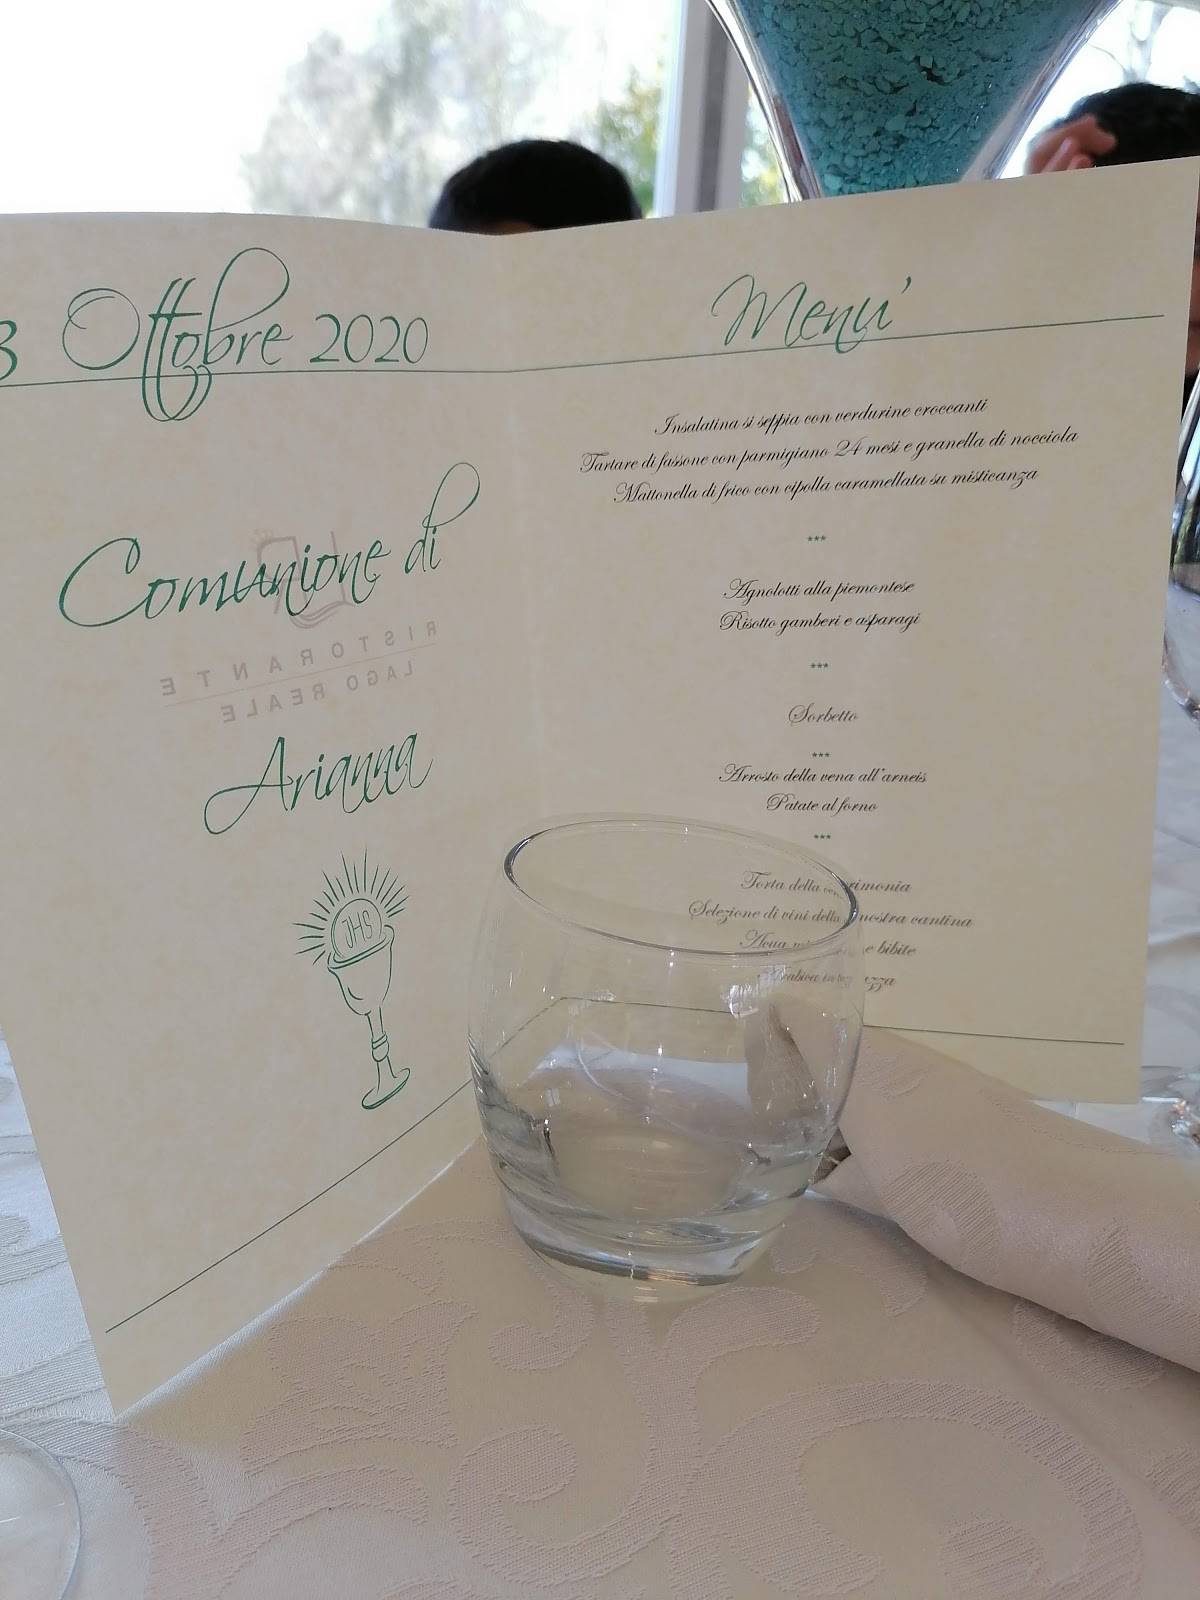 3 Ottobre 2020
Comunione di
RISTORANTE
LAGO REALE
Arianna
JHS
Menu'
Insalatina si seppia con verdurine croccanti
Tartare di fassone con parmigiano 24 mesi e granella di nocciola
Mattonella di frico con cipolla caramellata su misticanza
***
Agnolotti alla piemontese
Risotto gamberi e asparagi
***
Sorbetto
***
Arrosto della vena all'arneis
Patate al forno
***
Torta della
Selezione di vini della nostra cantina
Acua e bibite